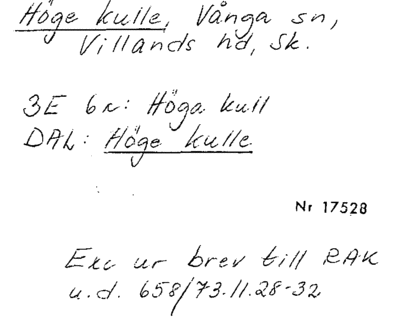 Höge kulle, Vånga sn,
Villands hd, Sk.
3E 6n: Höga kull
DAL: Höge kulle
Nr 17528
Exc ur brev till RAK
u.d. 658/73.11.28-32